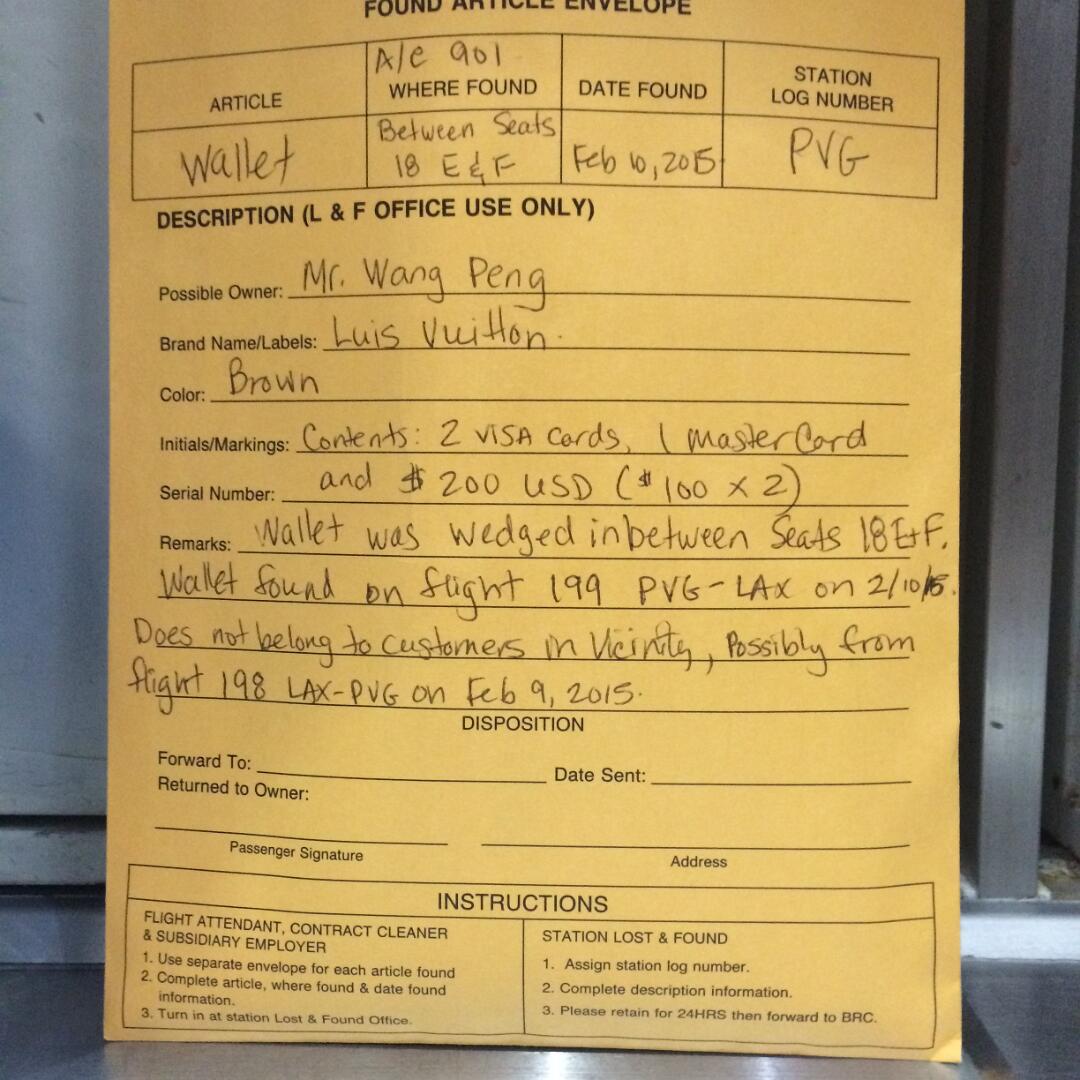 FOUND ARTICLE ENVELOPE
A/C 901
ARTICLE WHERE FOUND DATE FOUND STATION LOG NUMBER
Wallet Between Seats 18 E & F Feb 10, 2015 PVG
DESCRIPTION (L & F OFFICE USE ONLY)
Possible Owner: Mr. Wang Peng
Brand Name/Labels: Luis Vuitton.
Color: Brown
Initials/Markings: Contents: 2 VISA Cards, 1 master Card
Serial Number: and $200 USD ($100 x 2)
Remarks: Wallet was wedged inbetween Seats 18E+F.
Wallet found on flight 199 PVG-LAX on 2/10/15.
Does not belong to customers in Vicinity, Possibly from
flight 198 LAX-PVG on Feb 9, 2015.
DISPOSITION
Forward To: Date Sent:
Returned to Owner:
Passenger Signature Address
INSTRUCTIONS
FLIGHT ATTENDANT, CONTRACT CLEANER
& SUBSIDIARY EMPLOYER
1. Use separate envelope for each article found
2. Complete article, where found & date found
information.
3. Turn in at station Lost & Found Office.
STATION LOST & FOUND
1. Assign station log number.
2. Complete description information.
3. Please retain for 24HRS then forward to BRC.